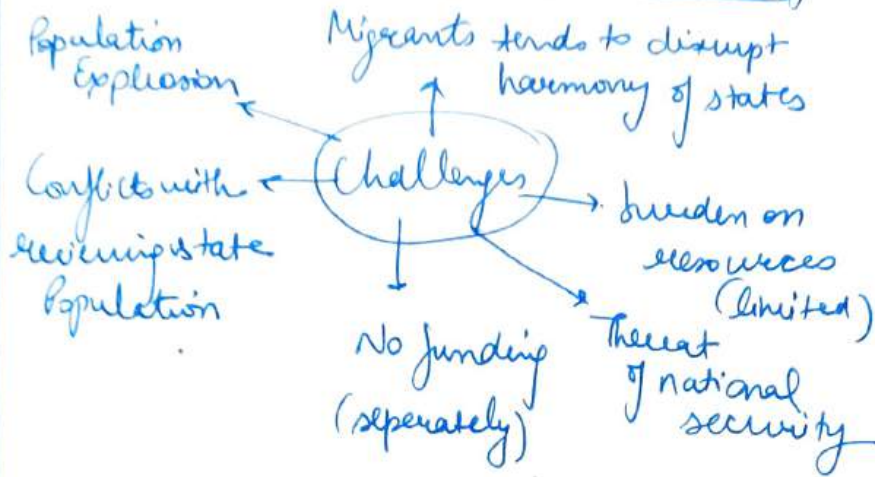 Population
Explosion
Migrants tends to disrupt
harmony of states
Challenges
Conflicts with
recieving state
Population
burden on
resources
(limited)
No funding
(seperately)
Threat
of national
security